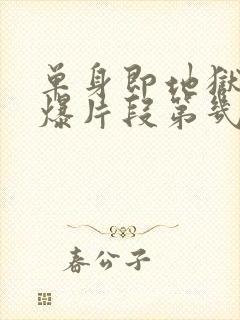 单身即地狱
爆片段第几
春公子